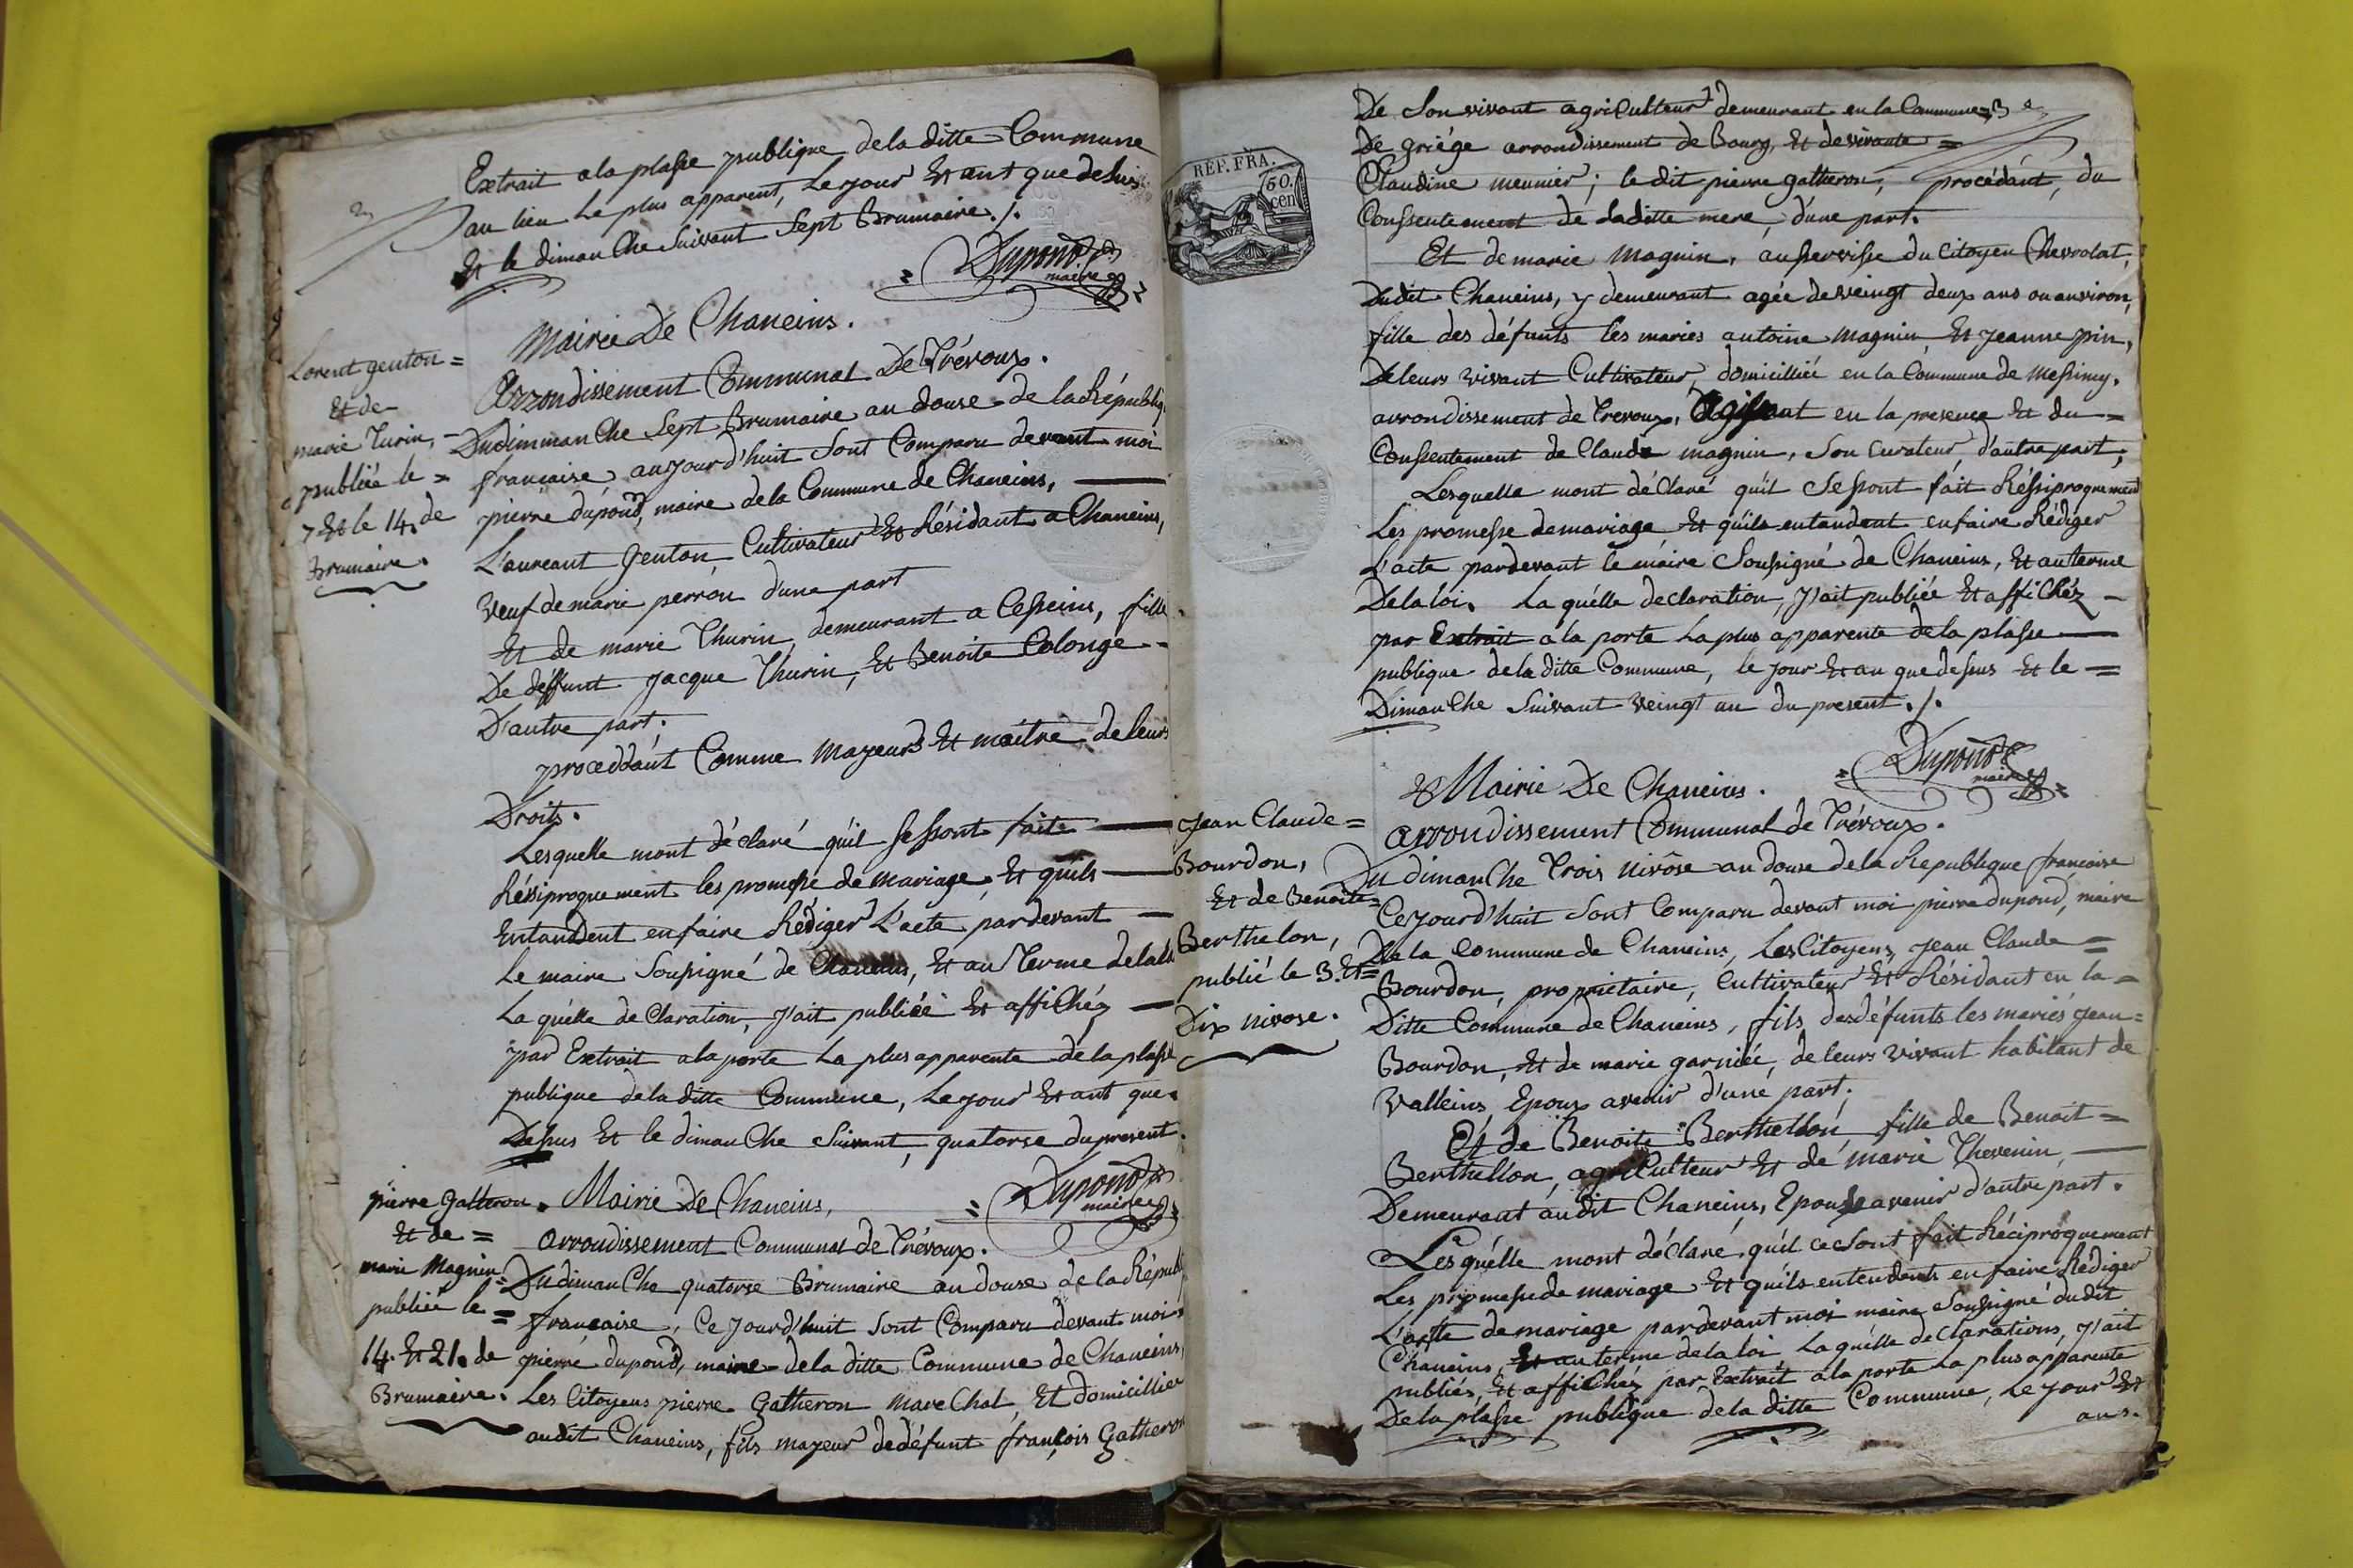 Extrait a la plasse publique de la ditte Commune
au lieu Le plus apparent, Le jour Et ant que desus
Et le dimanche Suivant Sept Brumaire./.
Dupond
maire
Mairie De Chaneins.
Arrondissement Communal De Trévoux.
Lorent genton =
Et de
marie Turin, -
publiée le =
7 Et le 14. de
Brumaire.
Du dimmanche Sept Brumaire an douse de la Républiq
française, aujourd'huit Sont Comparu devant moi
pierre dupond, maire de la Commune de Chaneins,
L'aureant Genton, Cultivateur Et Résidant a Chaneins,
veuf de marie perron d'une part
Et de marie Thurin, demeurant a Cesseins, fille
De deffunt Jacque Thurin, Et Benoite Colonge -
D'autre part;
proceddant Comme Mayeurs Et maitre de leurs
Droits.
Lesquelle mont déclaré quil se ssont faite
Réssiproquement les promesse de mariage, Et quils
Entanddent en faire Rédiger L'acte pardevant
Le maire Soussigné de Chaneins, Et au Terme de la loi
La quélle declaration, J'ait publiéé Et affichéz
par Extrait a la porte La plus apparente de la plasse
publique de la ditte Commune, Le jour Et ant que
Desus Et le dimanche Suivant, quatorse du present.
Dupond
maire
pierre Gatheron.
Et de =
marie Magnin =
publiée le =
14. Et 21. de
Brumaire.
Mairie De Chaneins,
arrondissement Communal de Trévoux.
Du dimanche quatorse Brumaire an douse de la Républ
francaise, Ce jourd'huit Sont Comparu devant moi
pierre dupond, maire de la ditte Commune de Chaneins,
Les Citoyens pierre Gatheron mareChal, Et domicillier
audit Chaneins, fils mayeur de défunt françois Gatheron
REP. FRA.
50.
cen
De Son vivant agriculteur demeurant en la Commune
De griége arrondissement de Bourg, Et de vivante =
Claudine meunier; le dit pierre gatheron, procédant, du
Conssentement de ladette mere, d'une part.
Et de marie Magnin, au servisse du Citoyen Chevrolat,
Dudit Chaneins, y demeurant agée de veingt deux ans ou anviron,
fille des défunts les maries antoine Magnin, Et Jeanne pin,
De leurs vivant Cultivateur, domicilliée en la Commune de Messimy.
arrondissement de Trevoux, Agissant en la presence Et du =
Conssentement de Claude magnin, Son Curateur d'autre part;
Lesquelle mont déclaré quil Se ssont fait Réssiproquement
Les promesse de mariage Et quils entandent en faire Rédiger
L'acte pardevant le maire Soussigné de Chaneins, Et au terme
De la loi. La quélle declaration, J'ait publiée Et affichéz -
par Extrait a la porte La plus apparente de la plasse
publique de la ditte Commune, le jour Et an que desus Et le =
Dimanche Suivant veingt un du present./.
Dupond
maire
Mairie De Chaneins.
arrondissement Communal de Trévoux.
Jean Claude =
Bourdon,
Et de Benoite =
Berthelon,
publié le 3. Et =
Dix nivose.
Du dimanche Trois Nivôse an douse de la Republique françoise
Ce jourd'huit Sont Comparu devant moi pierre dupond, maire
De la Commune de Chaneins, Les Citoyens, Jean Claude =
Bourdon, propriétaire, Cultivateur Et Résidant en la =
Ditte Commune de Chaneins, fils des défunts les mariés Jean =
Bourdon, Et de marie garniée, de leurs vivant habitant de
Valleins, Epoux avenir d'une part.
Et de Benoite Berthellon, fille de Benoit =
Berthellon, agriculteur Et de marie Thevenin,
Demeurant audit Chaneins, Epouse avenir d'autre part.
Les quélle mont déclaré quil ce sont fait Réciproquement
Les promesse de mariage Et quils entendents en faire Rédiger
L'acte de mariage pardevant moi maire Soussigné dudit
Chaneins, Et au terme de la loi La quélle declarations, J'ait
publiés, Et affichéz par Extrait a la porte La plus apparente
De la plasse publique de la ditte Commune, Le jour Et
ans.